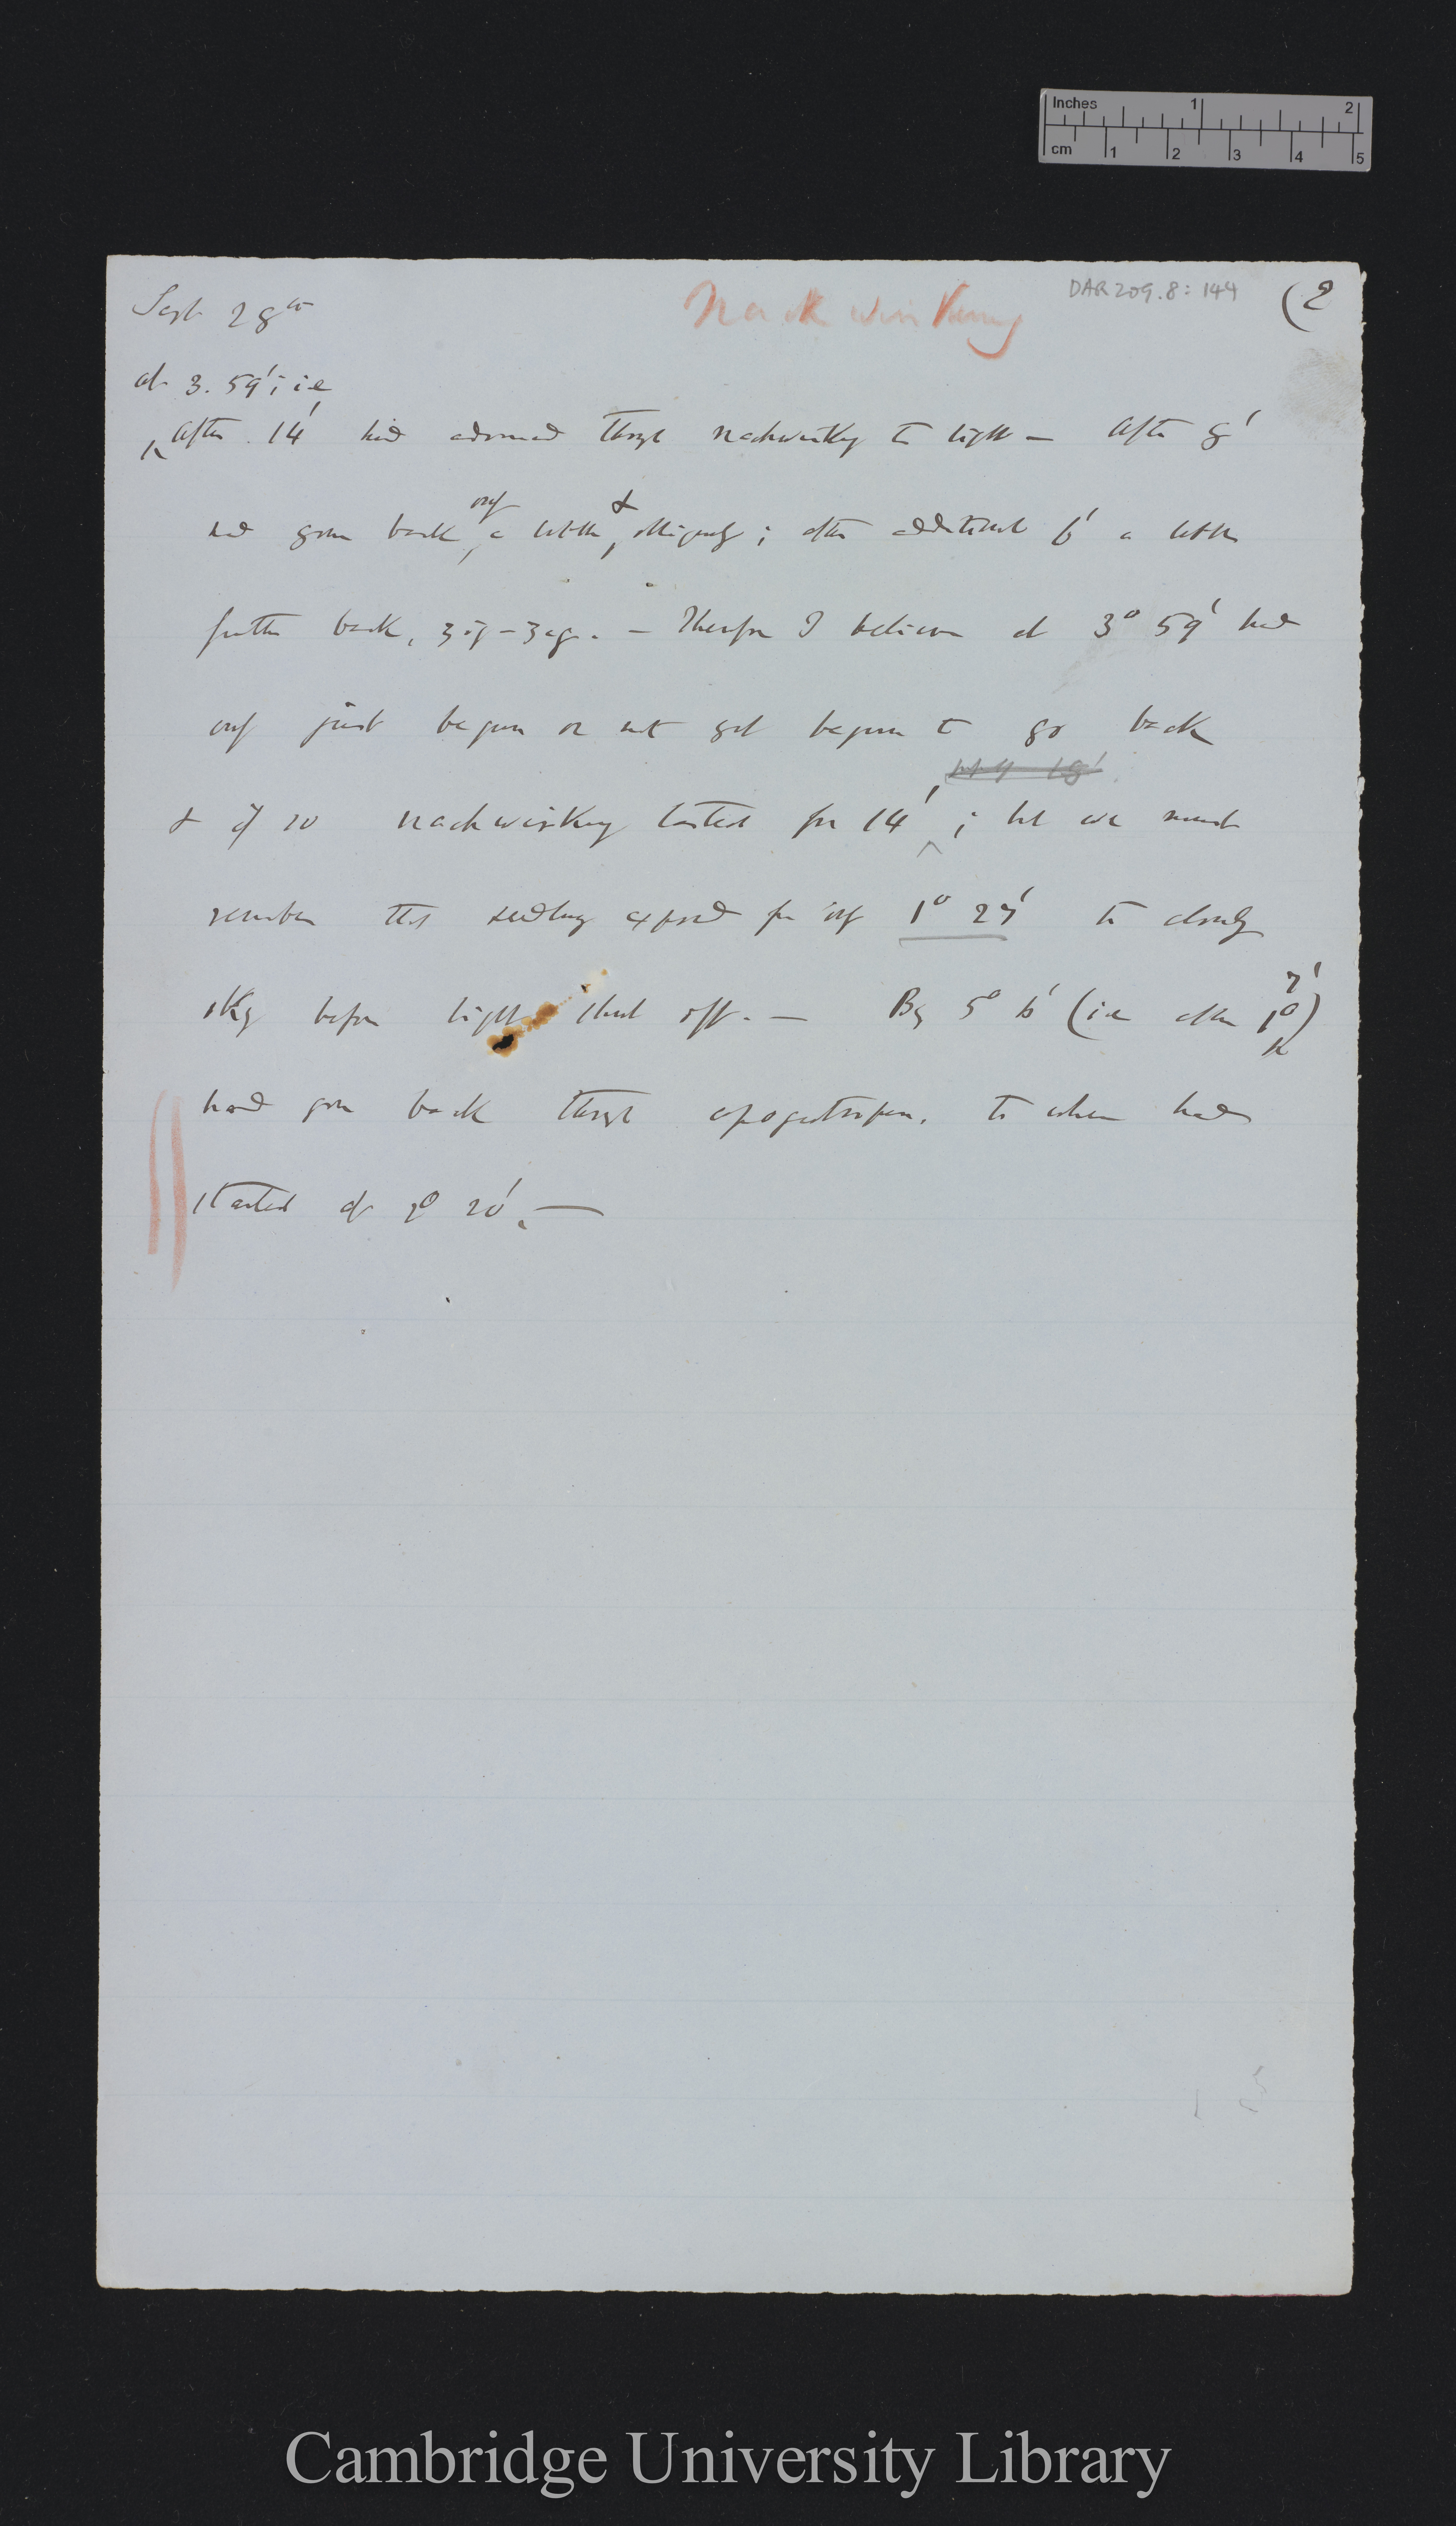 Inches 1 2
cm 1 2 3 4 5
Sept 28th
Nachwirkung
DAR 209.8: 144
(2
at 3. 59'; i.e
After 14' had advanced through nachwirkung to light — After 8'
had gone back only a little & obliquely; after additional 6' a little
further back, — Therefore I believe at 3° 59' had
only just begun or not yet begun to go back
& if so nachwirkung lasted for 14'; but we must
remember this seedling exposed for only 1° 27' to cloudy
sky before light shut off. — By 5° 6' (ie after 1° 7')
had gone back through apogeotropism. to where had
started at 2° 20'. —
Cambridge University Library